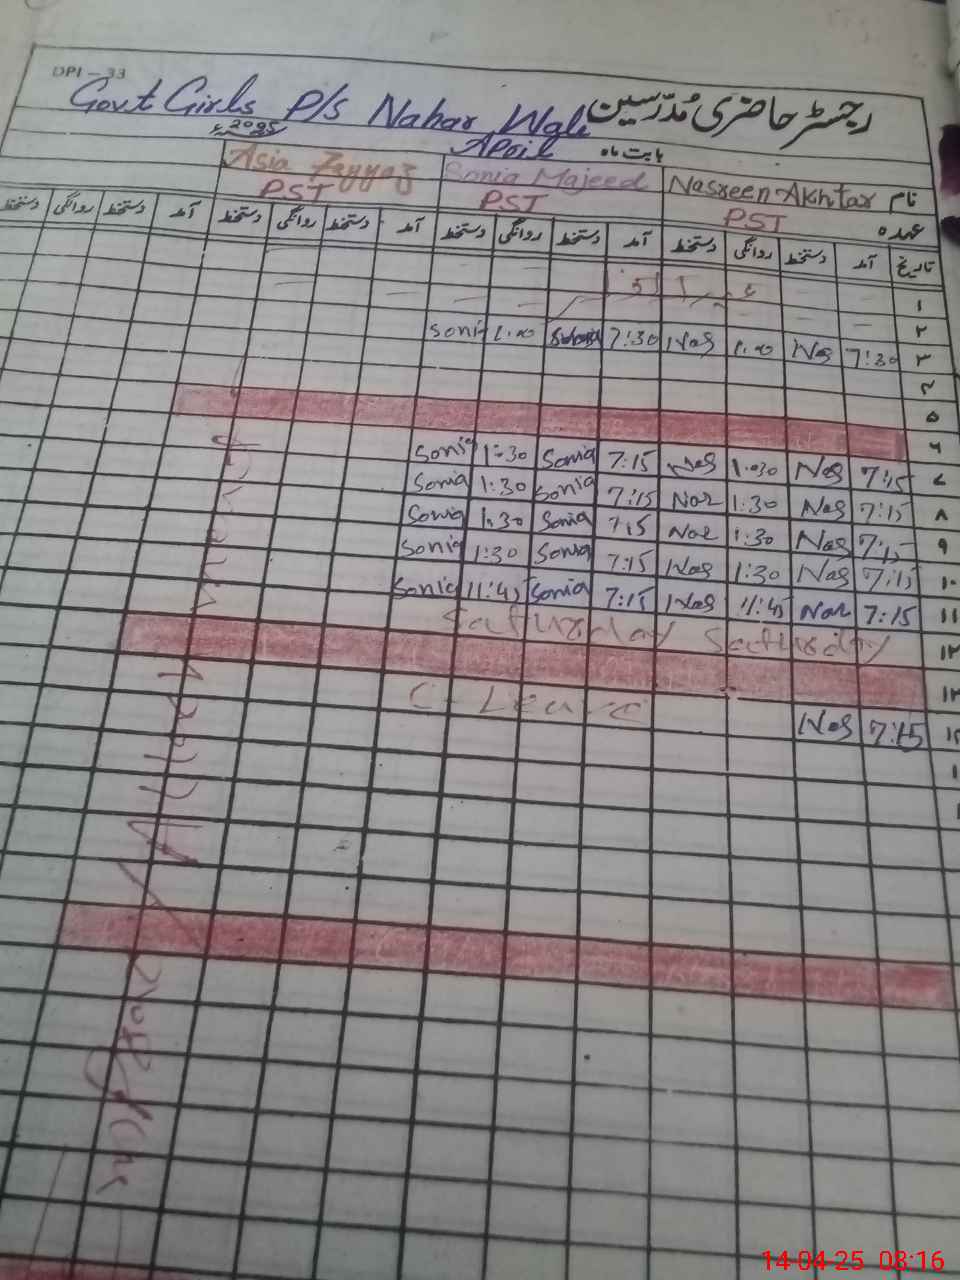 DPI - 33
Govt Girls P/S Nahar Wali رجسٹر حاضری مُدرسین
2025ء April بابت ماہ
نام Nasreen Akhtar Sonia Majeed Asia
عہدہ PST PST PST
تاریخ آمد دستخط روانگی دستخط آمد دستخط روانگی دستخط آمد دستخط روانگی دستخط آمد دستخط روانگی دستخط
۱
۲
۳ 7:30 Nas 1:00 Nas 7:30 1:00 Soni
۴
۵
۶
۷ 7:15 Nas 1:30 Nas 7:15 Sonia 1:30 Sonia
۸ 7:15 Nas 1:30 Nas 7:15 Sonia 1:30 Sonia
۹ 7:15 Nas 1:30 Nas 7:15 Sonia 1:30 Sonia
۱۰ 7:15 Nas 1:30 Nas 7:15 Sonia 1:30 Sonia
۱۱ 7:15 Nas 11:45 Nas 7:15 Sonia 11:45 Sonia
۱۲ Saturday Saturday
۱۳
۱۴ 7:15 Nas C-Leave
14-04-25 08:16